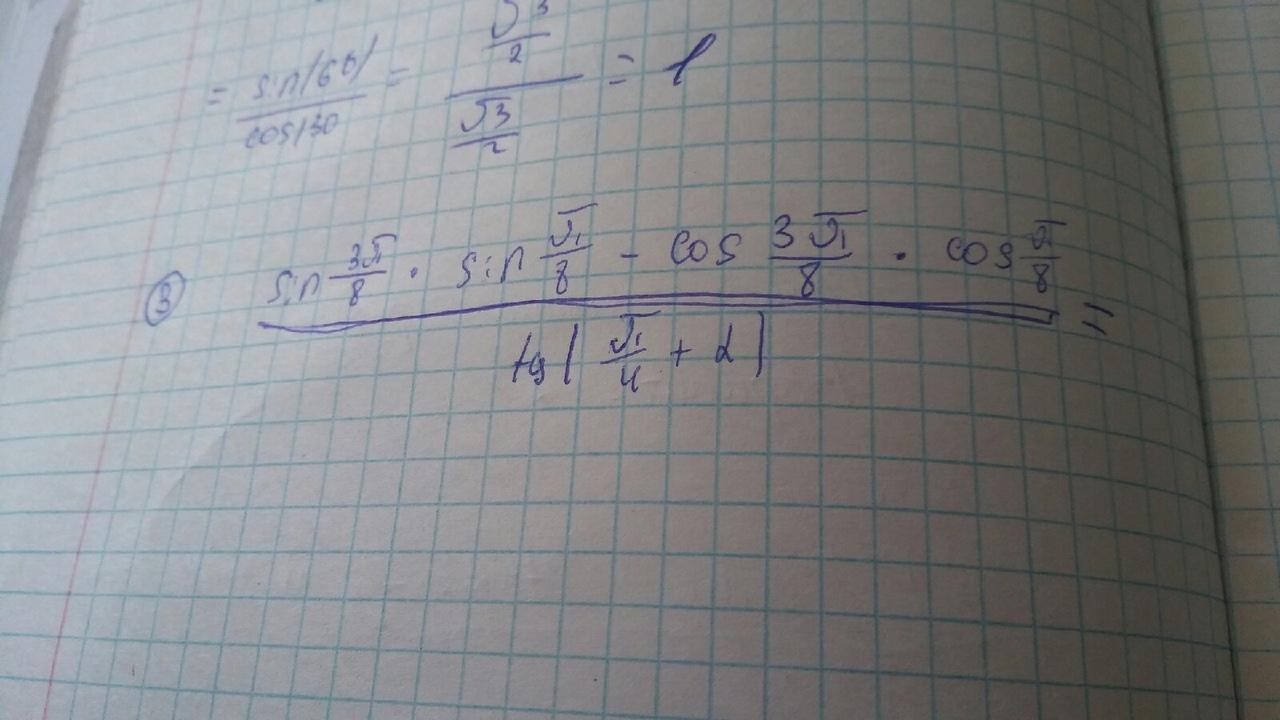 = sin(60) / cos130 = √3/2 / √3/2 = 1
③ sin 3π/8 · sin π/8 - cos 3π/8 · cos π/8 =
tg( π/4 + α )